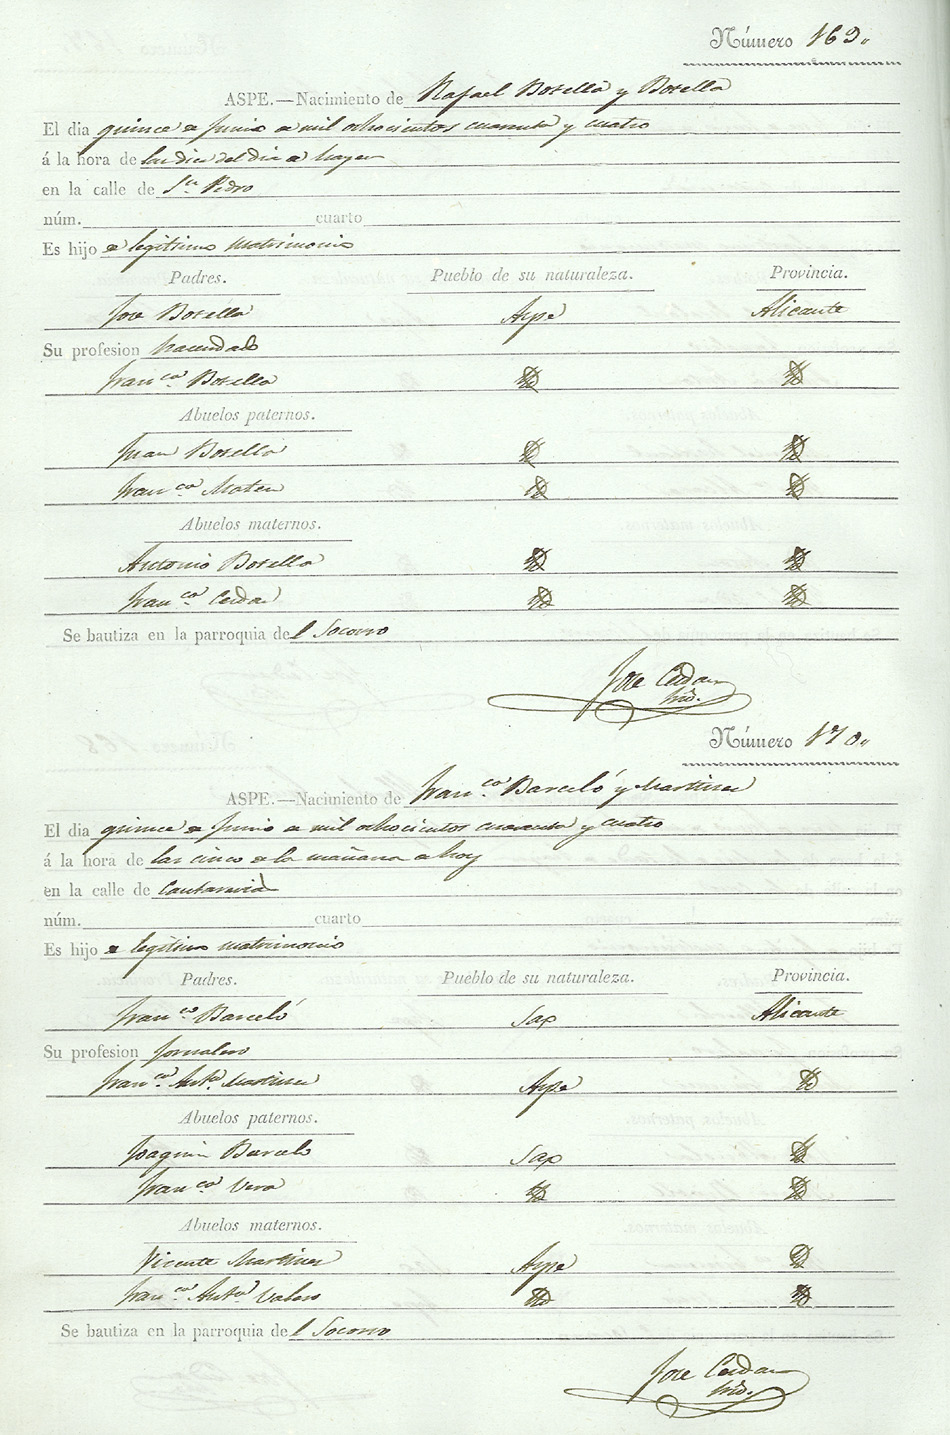 Número 169.
ASPE.—Nacimiento de Rafael Botella y Botella
El dia quince de Junio de mil ochocientos cuarenta y cuatro
á la hora de las dies del dia de hayer
en la calle de Sn. Pedro
núm. cuarto
Es hijo de legitimo matrimonio
Padres. Pueblo de su naturaleza. Provincia.
Jose Botella Aspe Alicante
Su profesion hacendado
Franca. Botella Yd Yd
Abuelos paternos.
Juan Botella Yd Yd
Franca. Mateu Yd Yd
Abuelos maternos.
Antonio Botella Yd Yd
Franca. Cerdan Yd Yd
Se bautiza en la parroquia del Socorro
Jose Cerdan
Número 170.
ASPE.—Nacimiento de Franco. Barceló y Martinez
El dia quince de Junio de mil ochocientos cuarenta y cuatro
á la hora de las cinco de la mañana de hoy
en la calle de
núm. cuarto
Es hijo de legitimo matrimonio
Padres. Pueblo de su naturaleza. Provincia.
Franco. Barceló Sax Alicante
Su profesion Jornalero
Franca. Anta. Martinez Aspe Yd
Abuelos paternos.
Joaquin Barcelo Sax Yd
Franca. Vera Yd Yd
Abuelos maternos.
Vicente Martinez Aspe Yd
Franca. Anta. Valero Yd Yd
Se bautiza en la parroquia del Socorro
Jose Cerdan